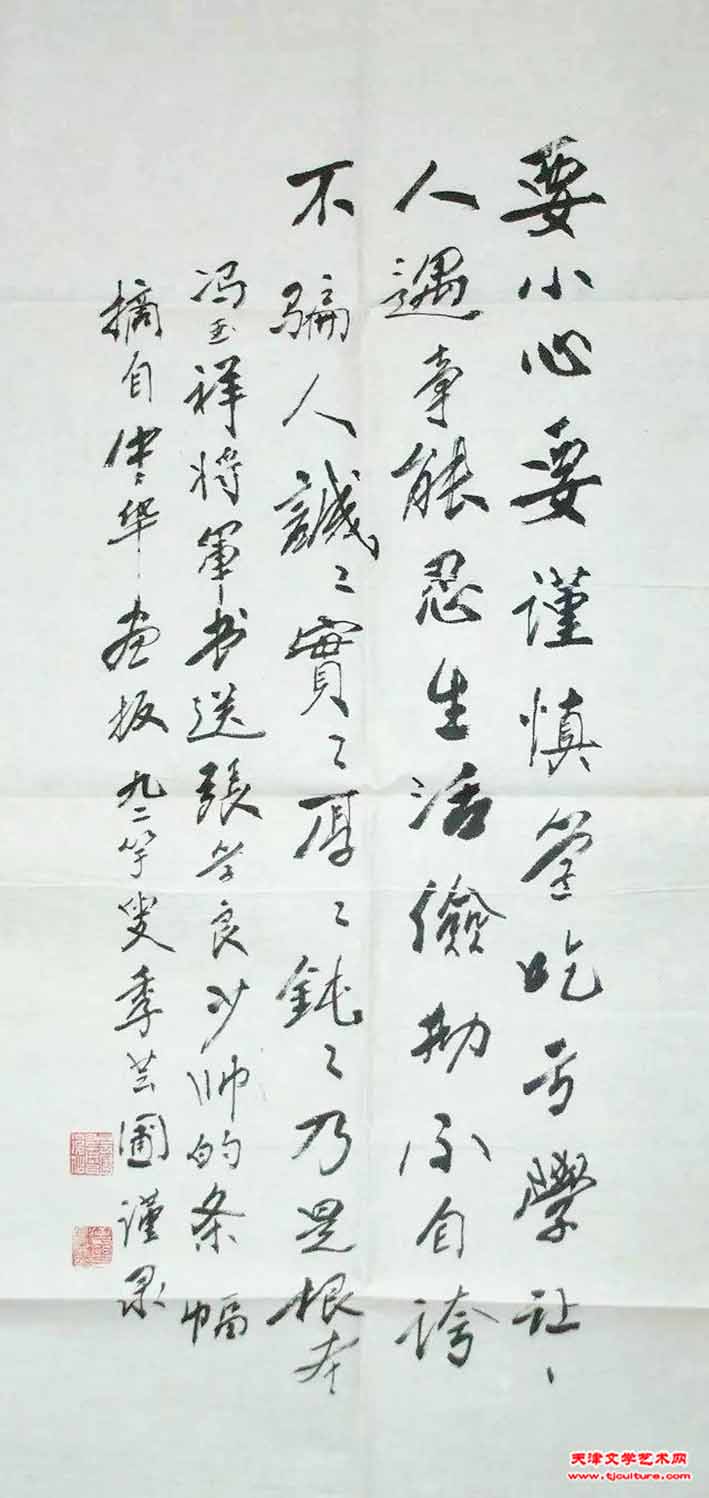 要小心要谨慎肯吃亏學让、
人遇事能忍生活儉勤不自誇
不骗人誠〻實〻厚〻鈍〻乃是根本
冯玉祥将军书送張学良少帅的条幅
摘自中华画报 九二竽叟季芸圃谨录
天津文学艺术网
www.tjculture.com